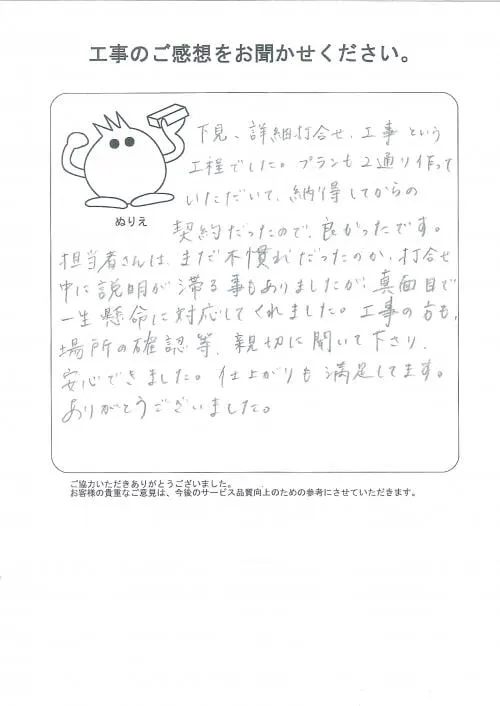 工事のご感想をお聞かせください。
下見、詳細打合せ、工事という
工程でした。プランも2通り作って
いただいて、納得してからの
ぬりえ
契約だったので、良かったです。
担当者さんは、まだ不慣れだったのか、打合せ
中に説明が滞る事もありましたが、真面目で
一生懸命に対応してくれました。工事の方も、
場所の確認等、親切に聞いて下さり、
安心できました。仕上がりも満足してます。
ありがとうございました。
ご協力いただきありがとうございました。
お客様の貴重なご意見は、今後のサービス品質向上のための参考にさせていただきます。